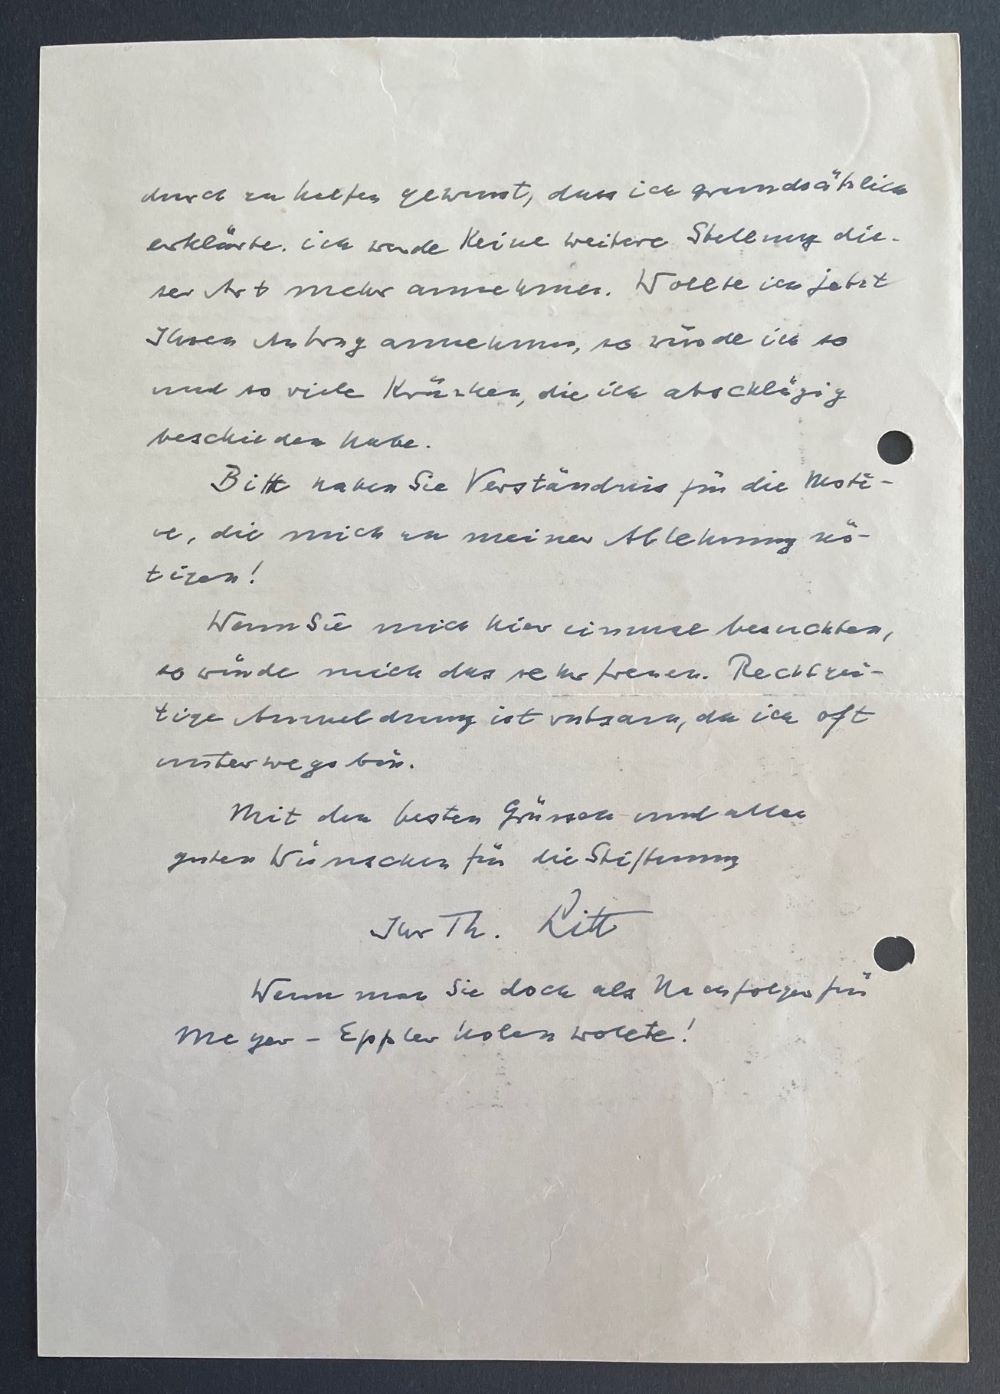 durch zu helfen gewusst, dass ich grundsätzlich
erklärte. ich werde keine weitere Stellung die-
ser Art mehr annehmen. Wollte ich jetzt
Ihren Antrag annehmen, so würde ich so
und so viele kränken, die ich abschlägig
beschieden habe.
Bitte haben Sie Verständnis für die Moti-
ve, die mich zu meiner Ablehnung nö-
tigen!
Wenn Sie mich hier einmal besuchten,
so würde mich das sehr freuen. Rechtzei-
tige Anmeldung ist ratsam, da ich oft
unterwegs bin.
Mit den besten Grüssen und allen
guten Wünschen für die Stiftung
Ihr Th. Litt
Wenn man Sie doch als Nachfolger für
Meyer-Eppler holen wollte!